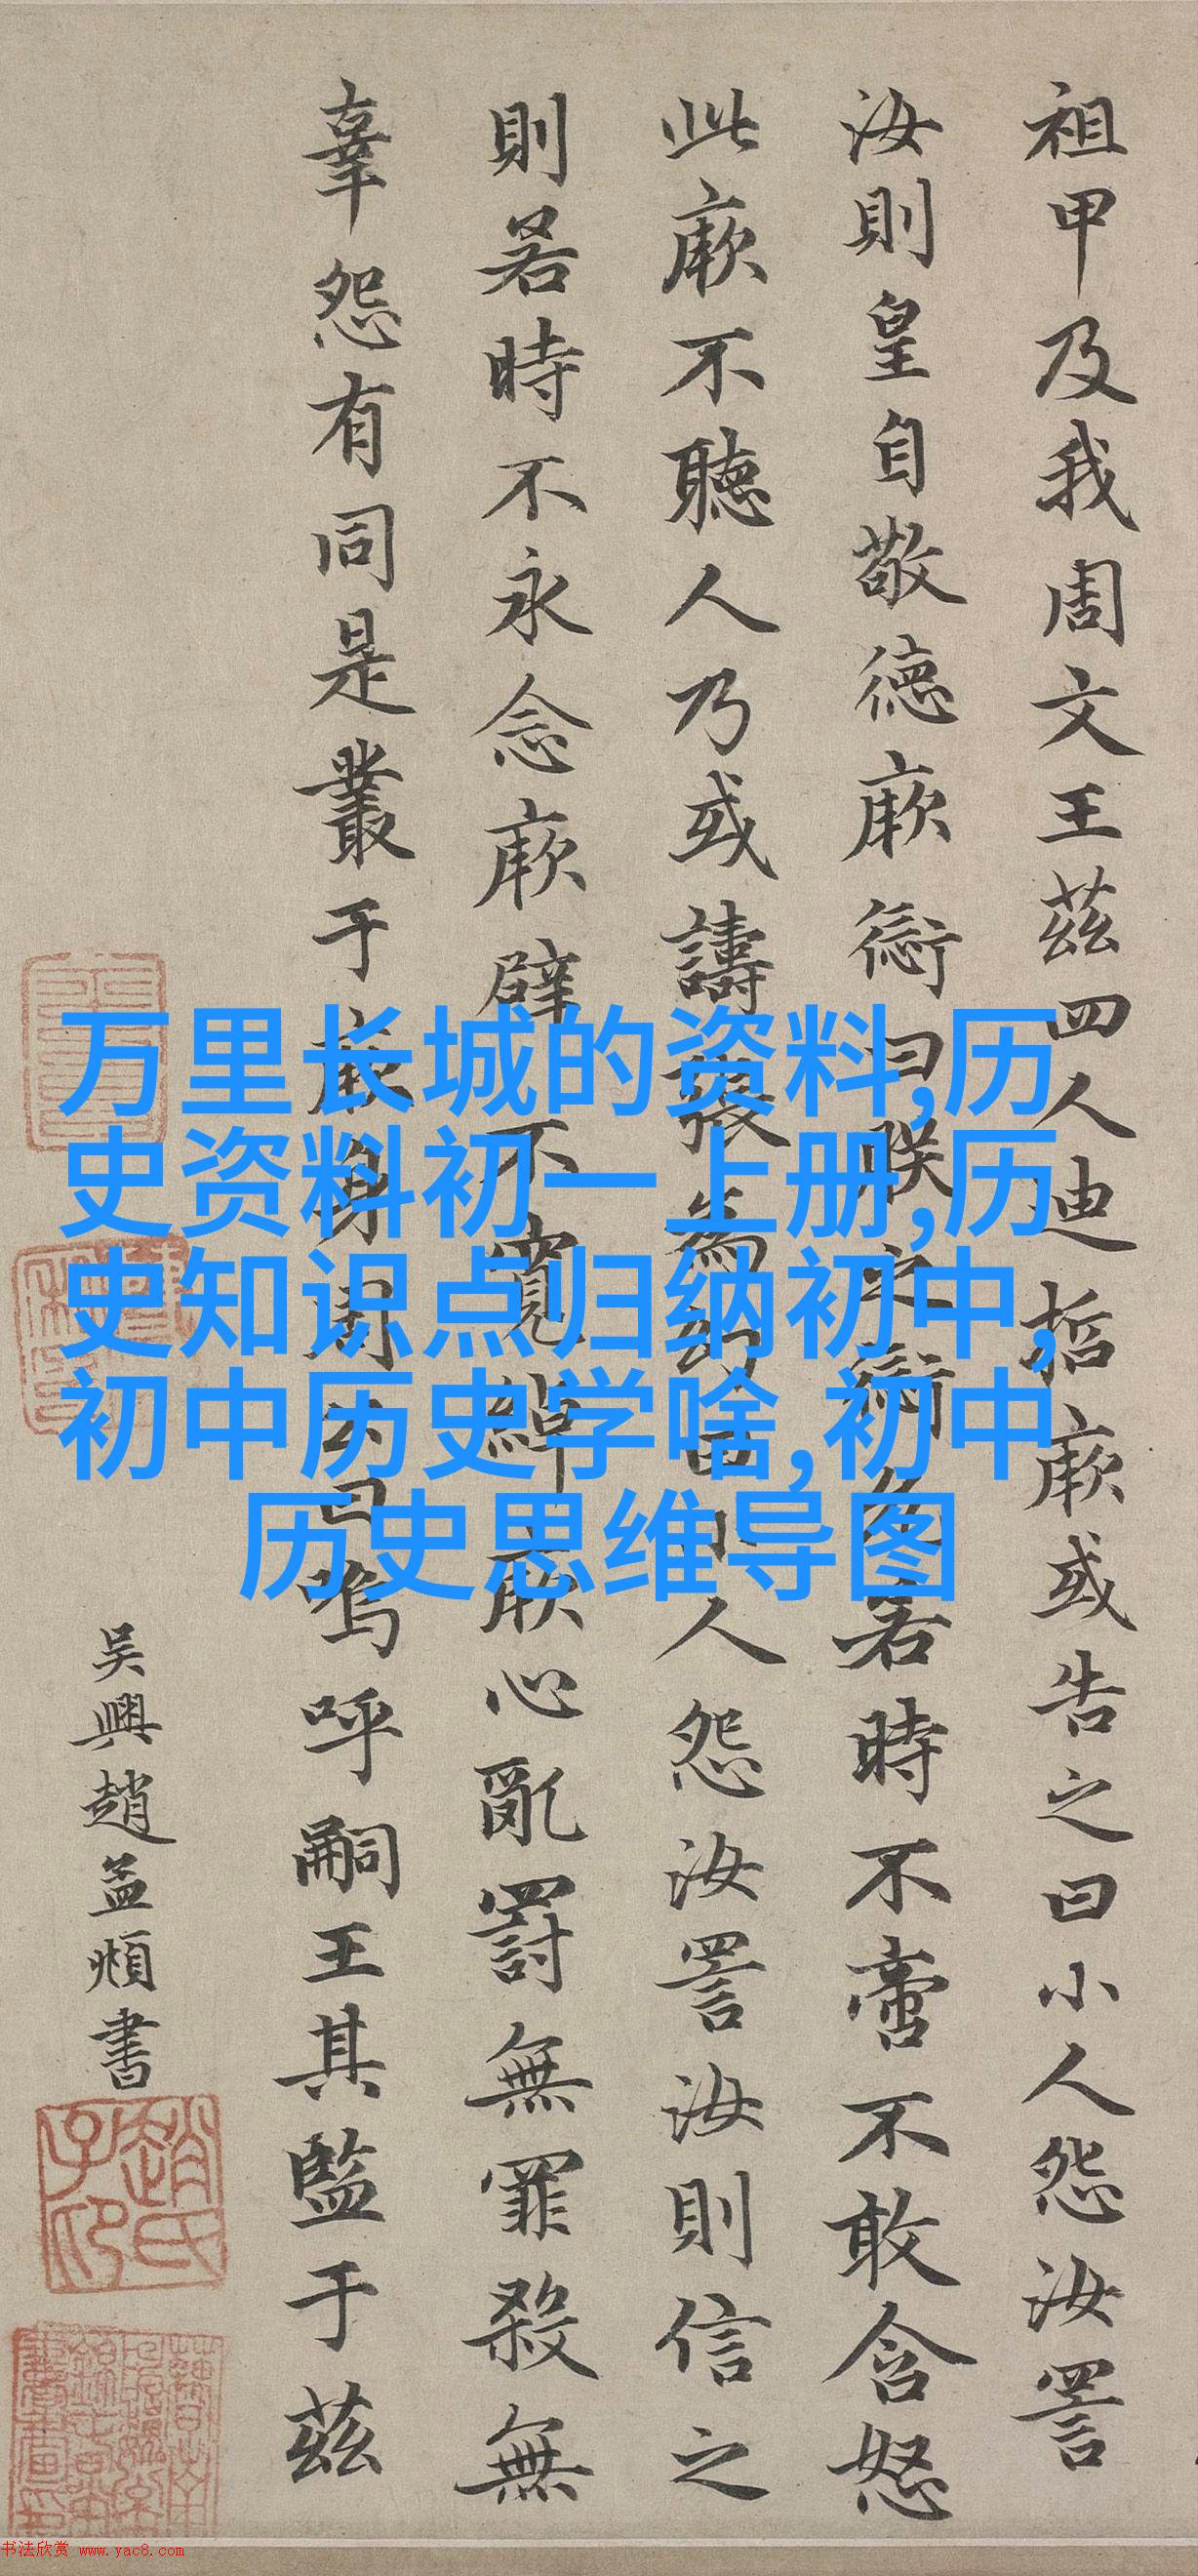 祖甲及我周文王茲四人迪哲厥或告之曰小人怨汝詈
汝則皇自敬德厥愆曰朕之愆允若時不啻不敢含怒
此厥不聽人乃或譸張為幻曰小人怨汝詈汝則信之
則若時不永念厥辟不寬綽厥心亂罰無罪殺無
辜怨有同是叢于厥身周公曰嗚呼嗣王其監于茲
吳興趙孟頫書
趙氏子昂
万里长城的资料,历
史资料初一上册,历
史知识点归纳初中,
初中历史学啥,初中
历史思维导图
书法欣赏 www.yac8.com